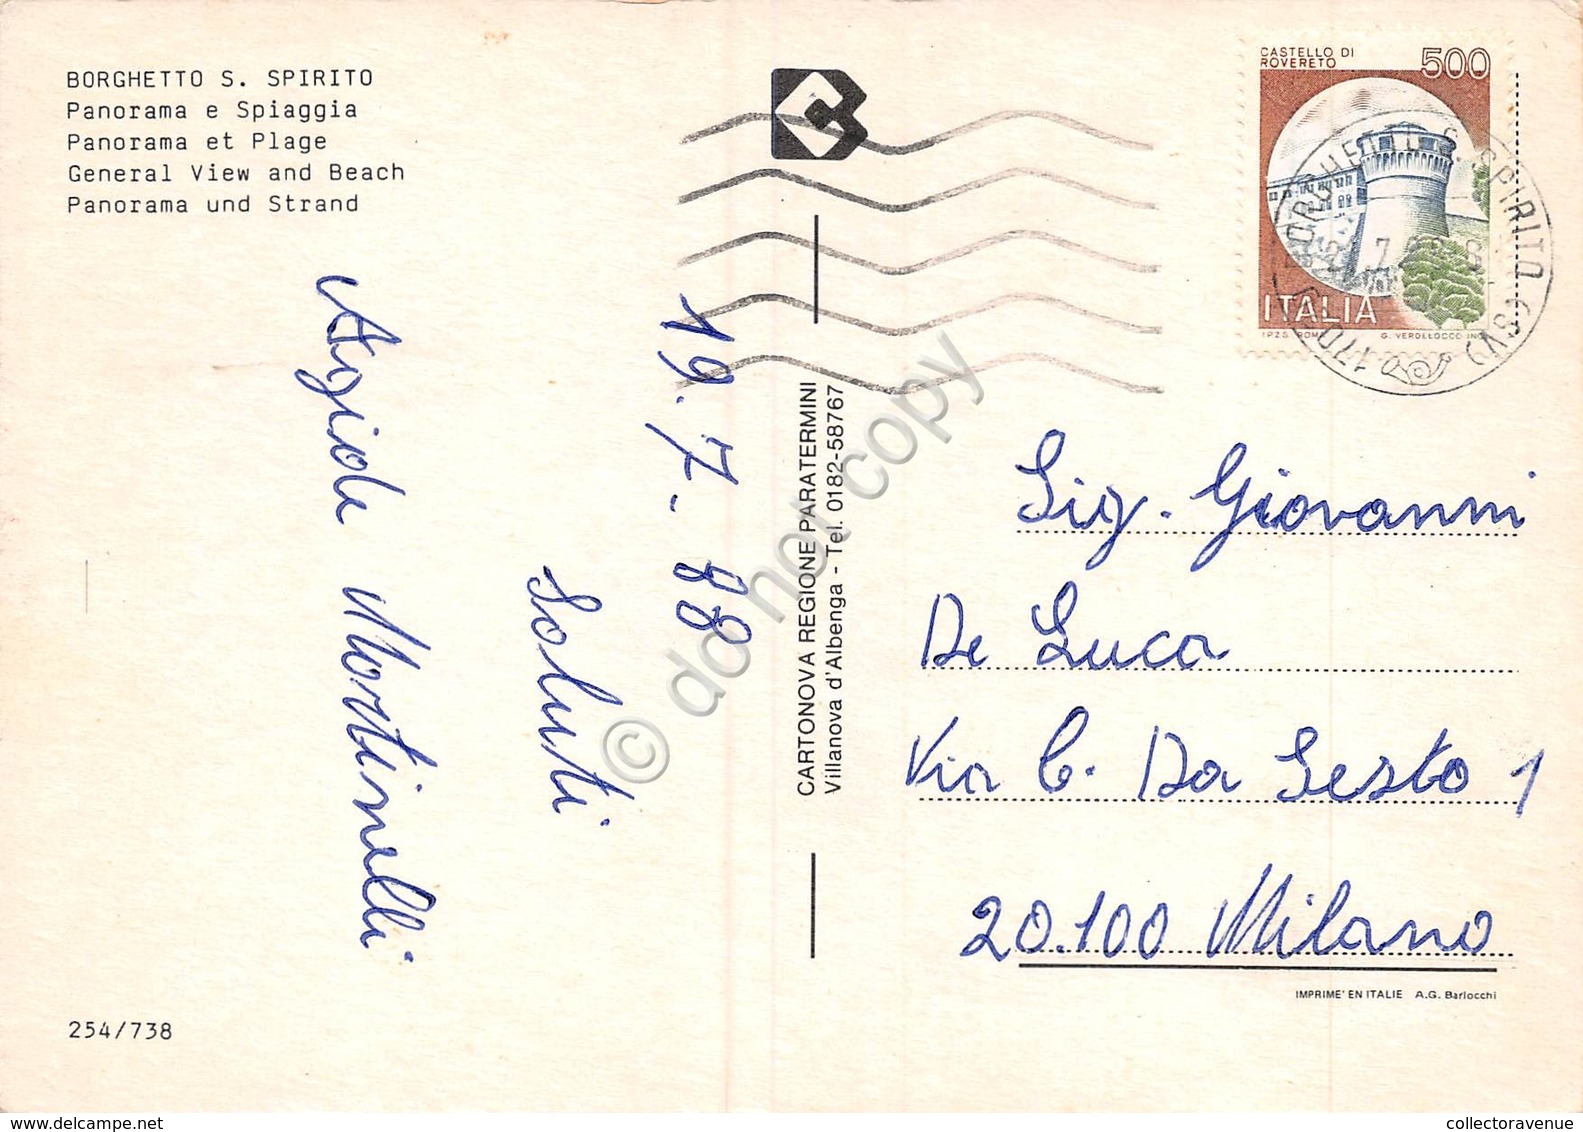 BORGHETTO S. SPIRITO
Panorama e Spiaggia
Panorama et Plage
General View and Beach
Panorama und Strand
19.7.88
Saluti
Martinelli
254/738
CARTONOVA REGIONE PARATERMINI
Villanova d'Albenga - Tel. 0182-58767
CASTELLO DI
ROVERETO
500
ITALIA
I.P.Z.S. ROMA
G. VERDELOCCO INC.
BORGHETTO S. SPIRITO (SV)
Sig. Giovanni
De Luca
Via C. Da Sesto 1
20.100 Milano
IMPRIME' EN ITALIE A.G. Barlocchi
© do not copy
collectoravenue
delcampe.net